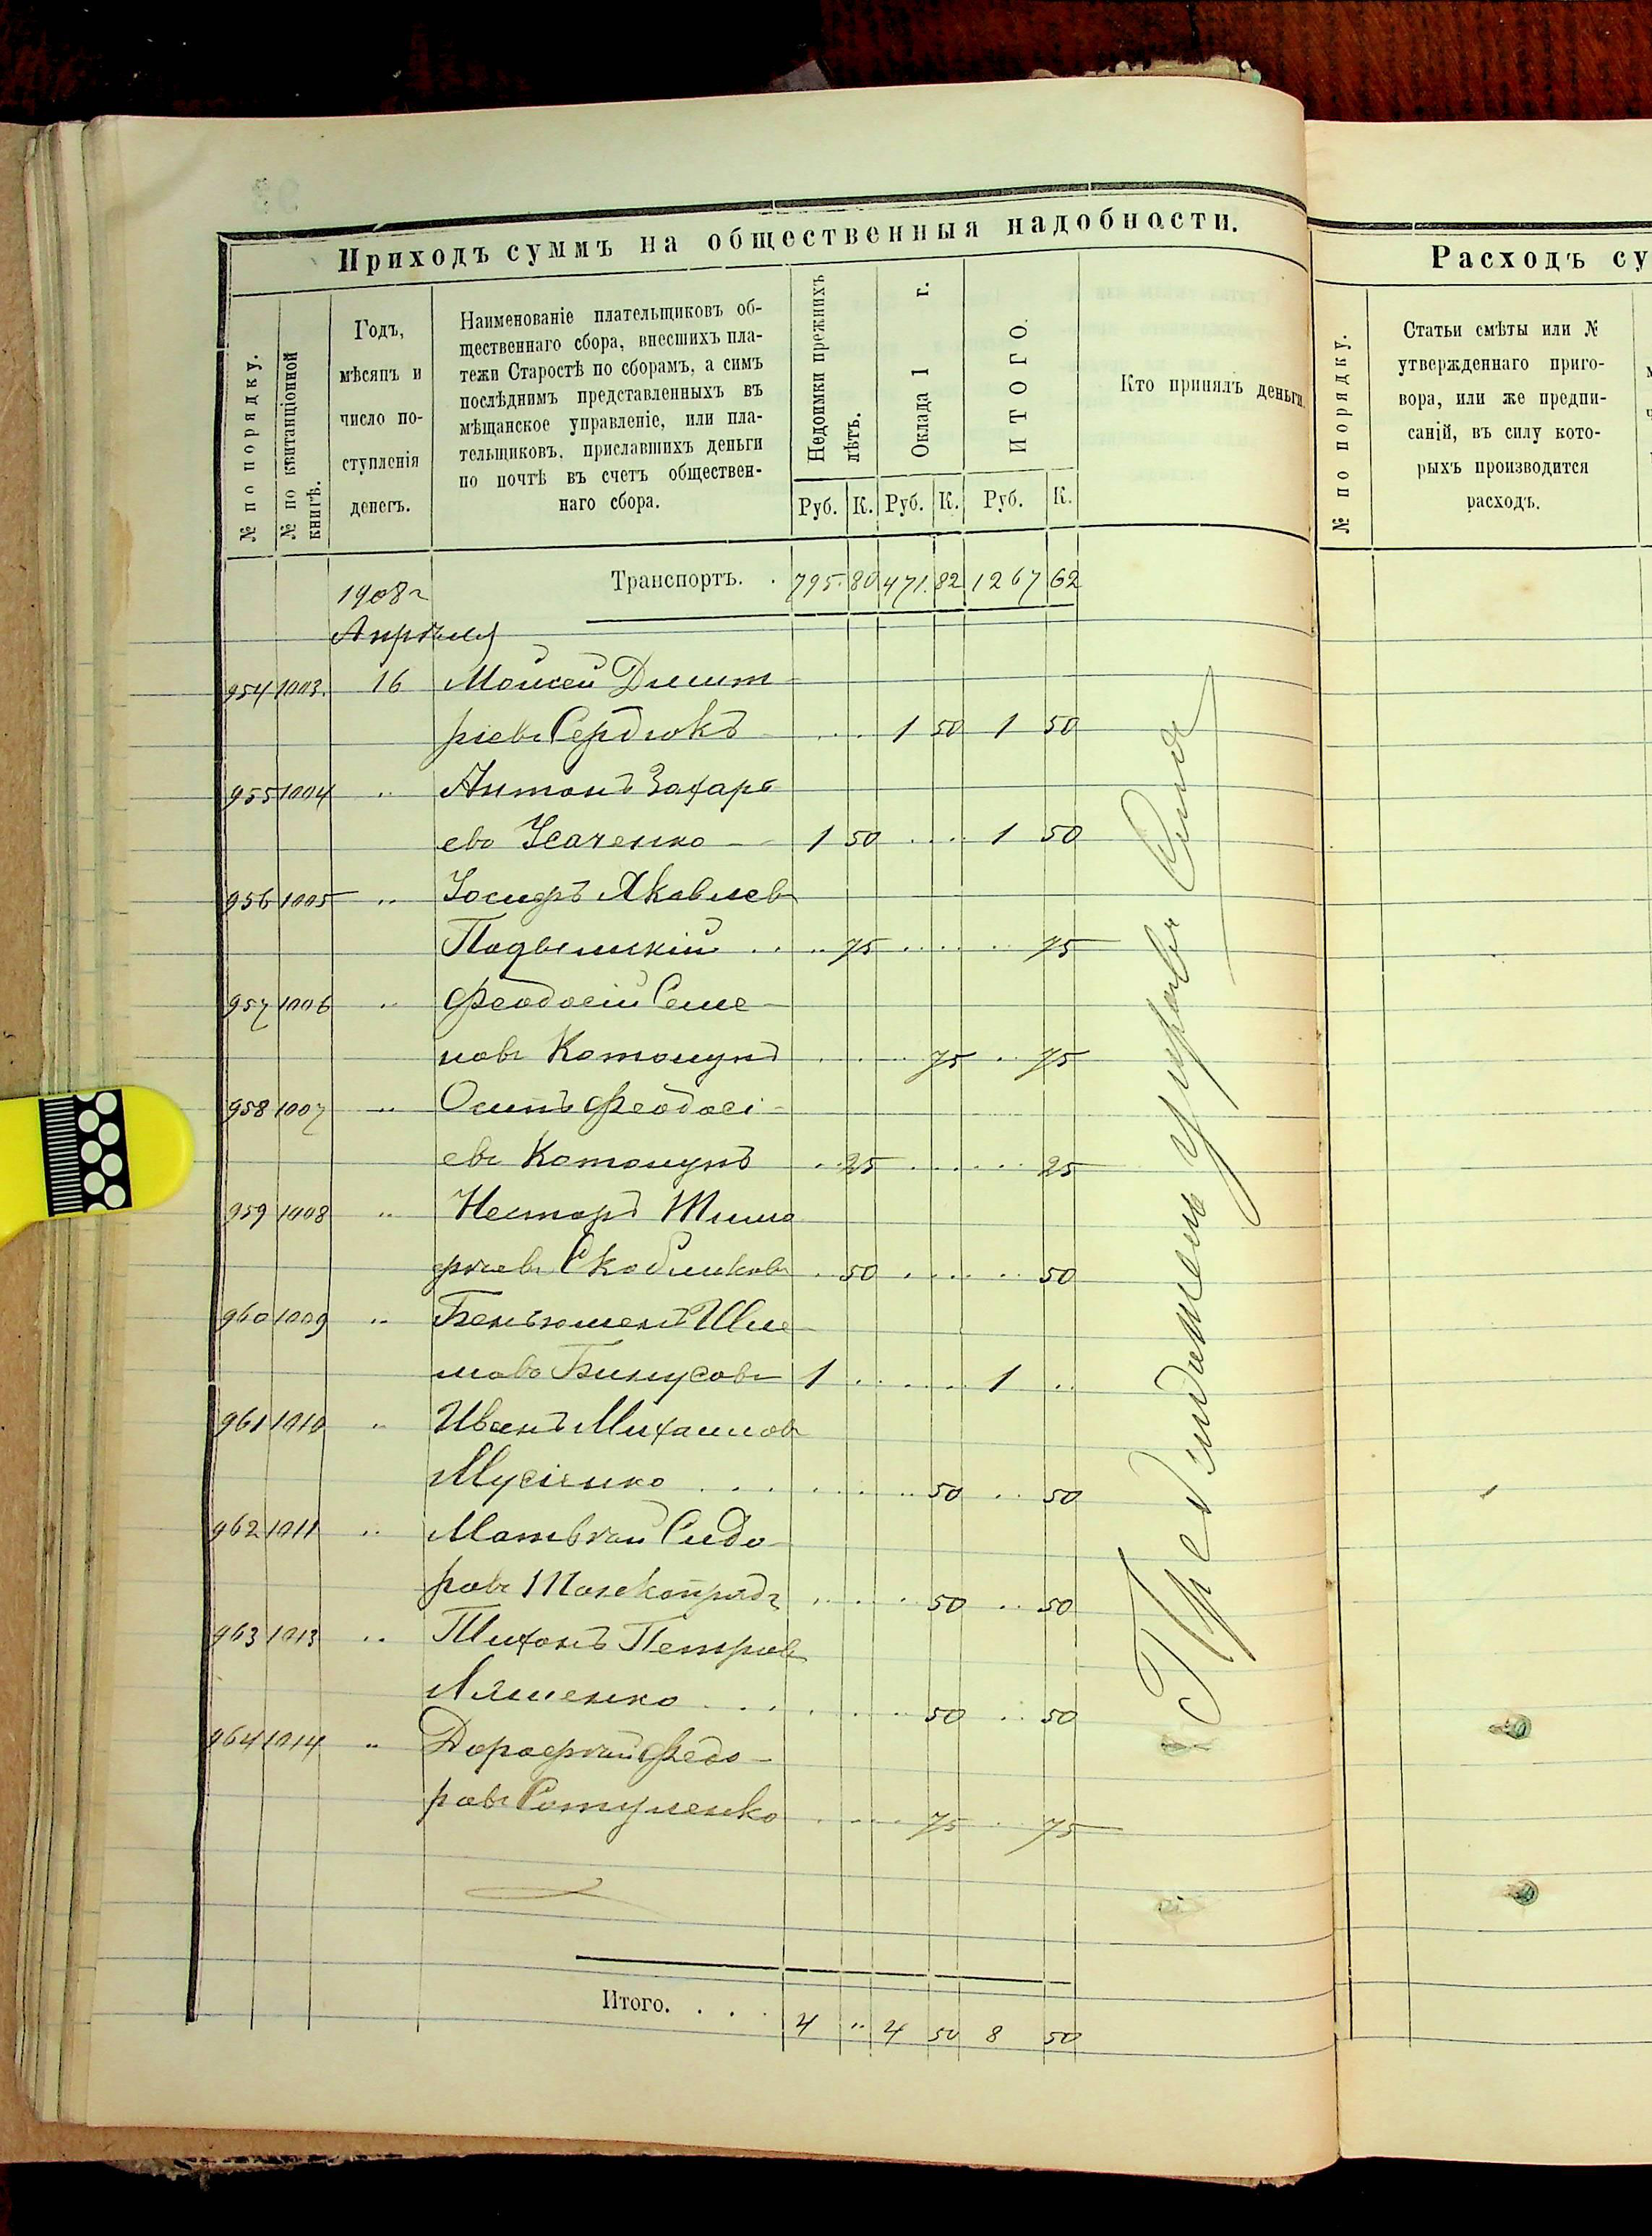 Приходъ суммъ на общественныя надобности.
№ по порядку.
№ по квитанціонной
книгѣ.
Годъ,
мѣсяцъ и
число по-
ступленія
денегъ.
Наименованіе плательщиковъ об-
щественнаго сбора, внесшихъ пла-
тежи Старостѣ по сборамъ, а симъ
послѣднимъ представленныхъ въ
мѣщанское управленіе, или пла-
тельщиковъ, приславшихъ деньги
по почтѣ въ счетъ обществен-
наго сбора.
Недоимки прежнихъ
лѣтъ.
Оклада 1 г.
ИТОГО.
Кто принялъ деньги.
Руб. К. Руб. К. Руб. К.
1908 г Транспортъ. . 795. 80 471. 82 1267 62
Апрѣля
954 1003. 16 Моисей Дмит-
ріевъ Сердюкъ . . . 1 50 1 50
955 1004 " Антонъ Захарь
евъ Усаченко - 1 50 . . . . 1 50
956 1005 " Іосифъ Яковлев
. . . . 75 . . . . . . 75
957 1006 " Феодосій Семе-
новъ Котомунъ . . . . . 75 . . 75
958 1007 " Осипъ Феодосі-
евъ Котомунъ . . 25 . . . . . . 25
959 1008 " Несторъ Тимо
фѣевъ Скобликовъ . 50 . . . . . . 50
960 1009 "
1 . . . . . . 1 . .
961 1010 " Иванъ Михаиловъ
Мусіенко . . . . . . . . 50 . . 50
962 1011 " Матвѣй Сидо-
ровъ . . . . . 50 . . 50
963 1013 " Тихонъ Петров
Ляшенко . . . . . . . . 50 . . 50
964 1014 " Дорофѣй Федо-
ровъ . . . . . 75 . . 75
Итого. . . . 4 " 4 50 8 50
Расходъ су
№ по порядку.
Статьи смѣты или №
утвержденнаго приго-
вора, или же предпи-
саній, въ силу кото-
рыхъ производится
расходъ.